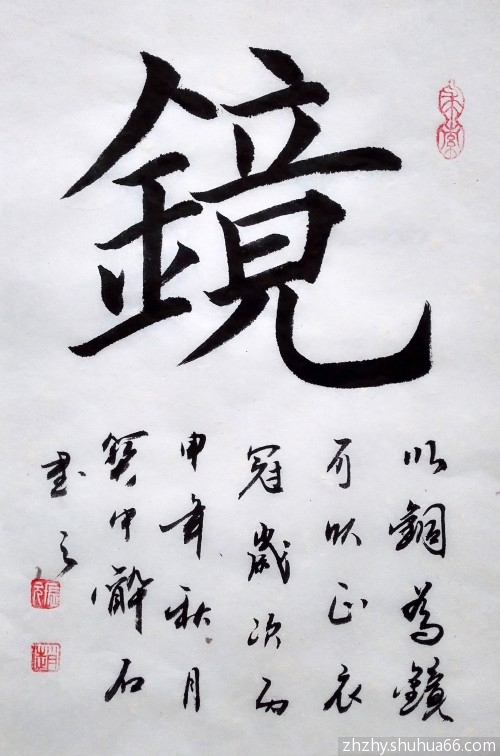 鏡
以銅為鏡
可以正衣
冠歲次丙
申年秋月
冀中醉石
書之
zhzhy.shuhua66.com